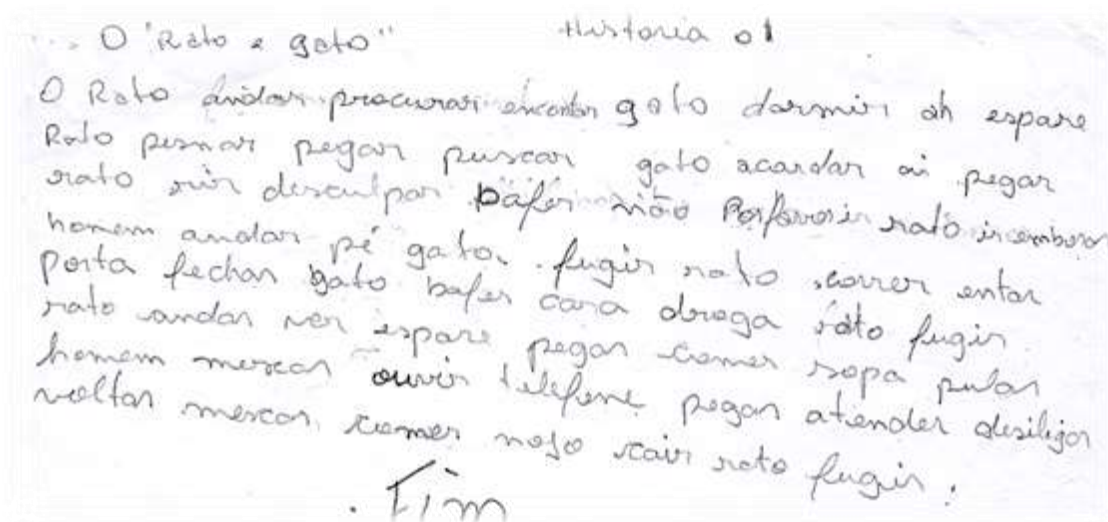 O "Rato e gato" Historia 01
O Rato andar procurar encontr gato dormir ah espare
Rato pensar pegar puscar gato acordar ai pegar
rato rir desculpar bafer não Porfavorir rato ir embora
homem andar pé gato. fugir rato correr entar
porta fechar gato bafer cara droga rato fugir
rato andar ver espare pegar comer sopa pular
homem mexcar ouvir telefone pegar atender desiligar
voltar mexcar comer nojo cair rato fugir.
Fim